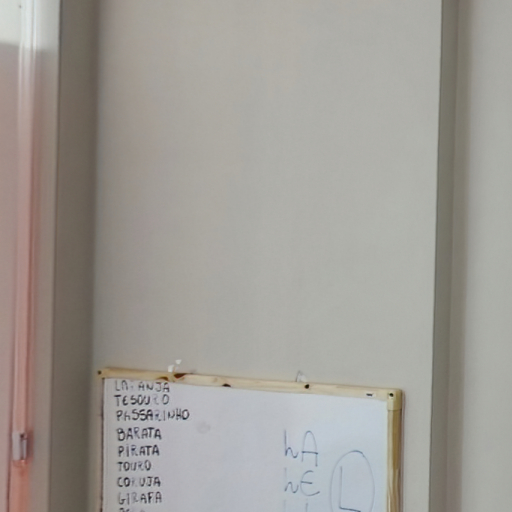 LARANJA
TESOURO
PASSARINHO
BARATA
PIRATA
TOURO
CORUJA
GIRAFA
hA
hE
L